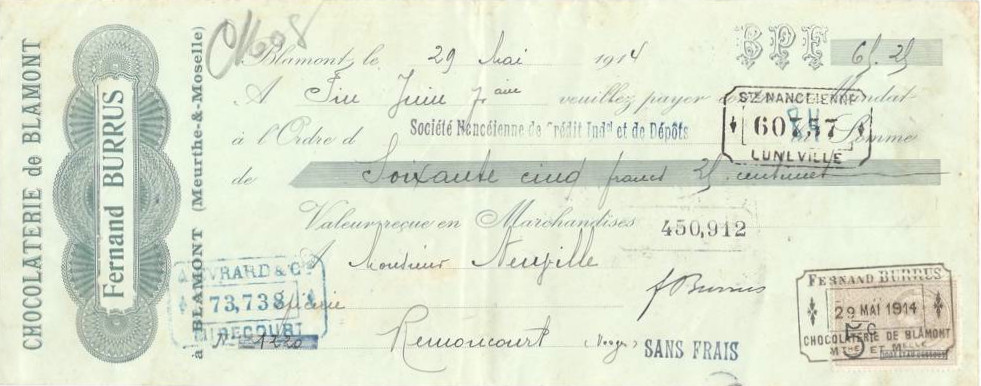 CHOCOLATERIE de BLAMONT
Fernand BURRUS
à BLAMONT (Meurthe-&-Moselle)
Blamont, le 29 Mai 1914 B.P.F. 65.25
A Fin Juin veuillez payer Mandat
à l'Ordre d Société Nancéienne de Crédit Indel et de Dépôts Somme
de Soixante cinq francs 25 centimes
Valeur reçue en Marchandises
STE NANCÉIENNE
LUNÉVILLE
450,912
A Monsieur Neuville
F Burrus
EVRARD & Cie
73,738
MIRECOURT
N° 1220
Remoncourt (Vosges)
SANS FRAIS
FERNAND BURRUS
29 MAI 1914
5c
CHOCOLATERIE DE BLÂMONT
MTHE ET MELLE